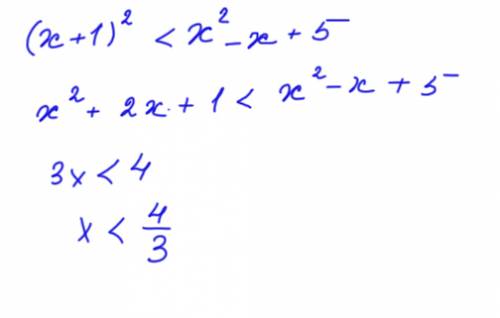 (x+1)² < x² - x + 5
x² + 2x + 1 < x² - x + 5
3x < 4
x < 4/3